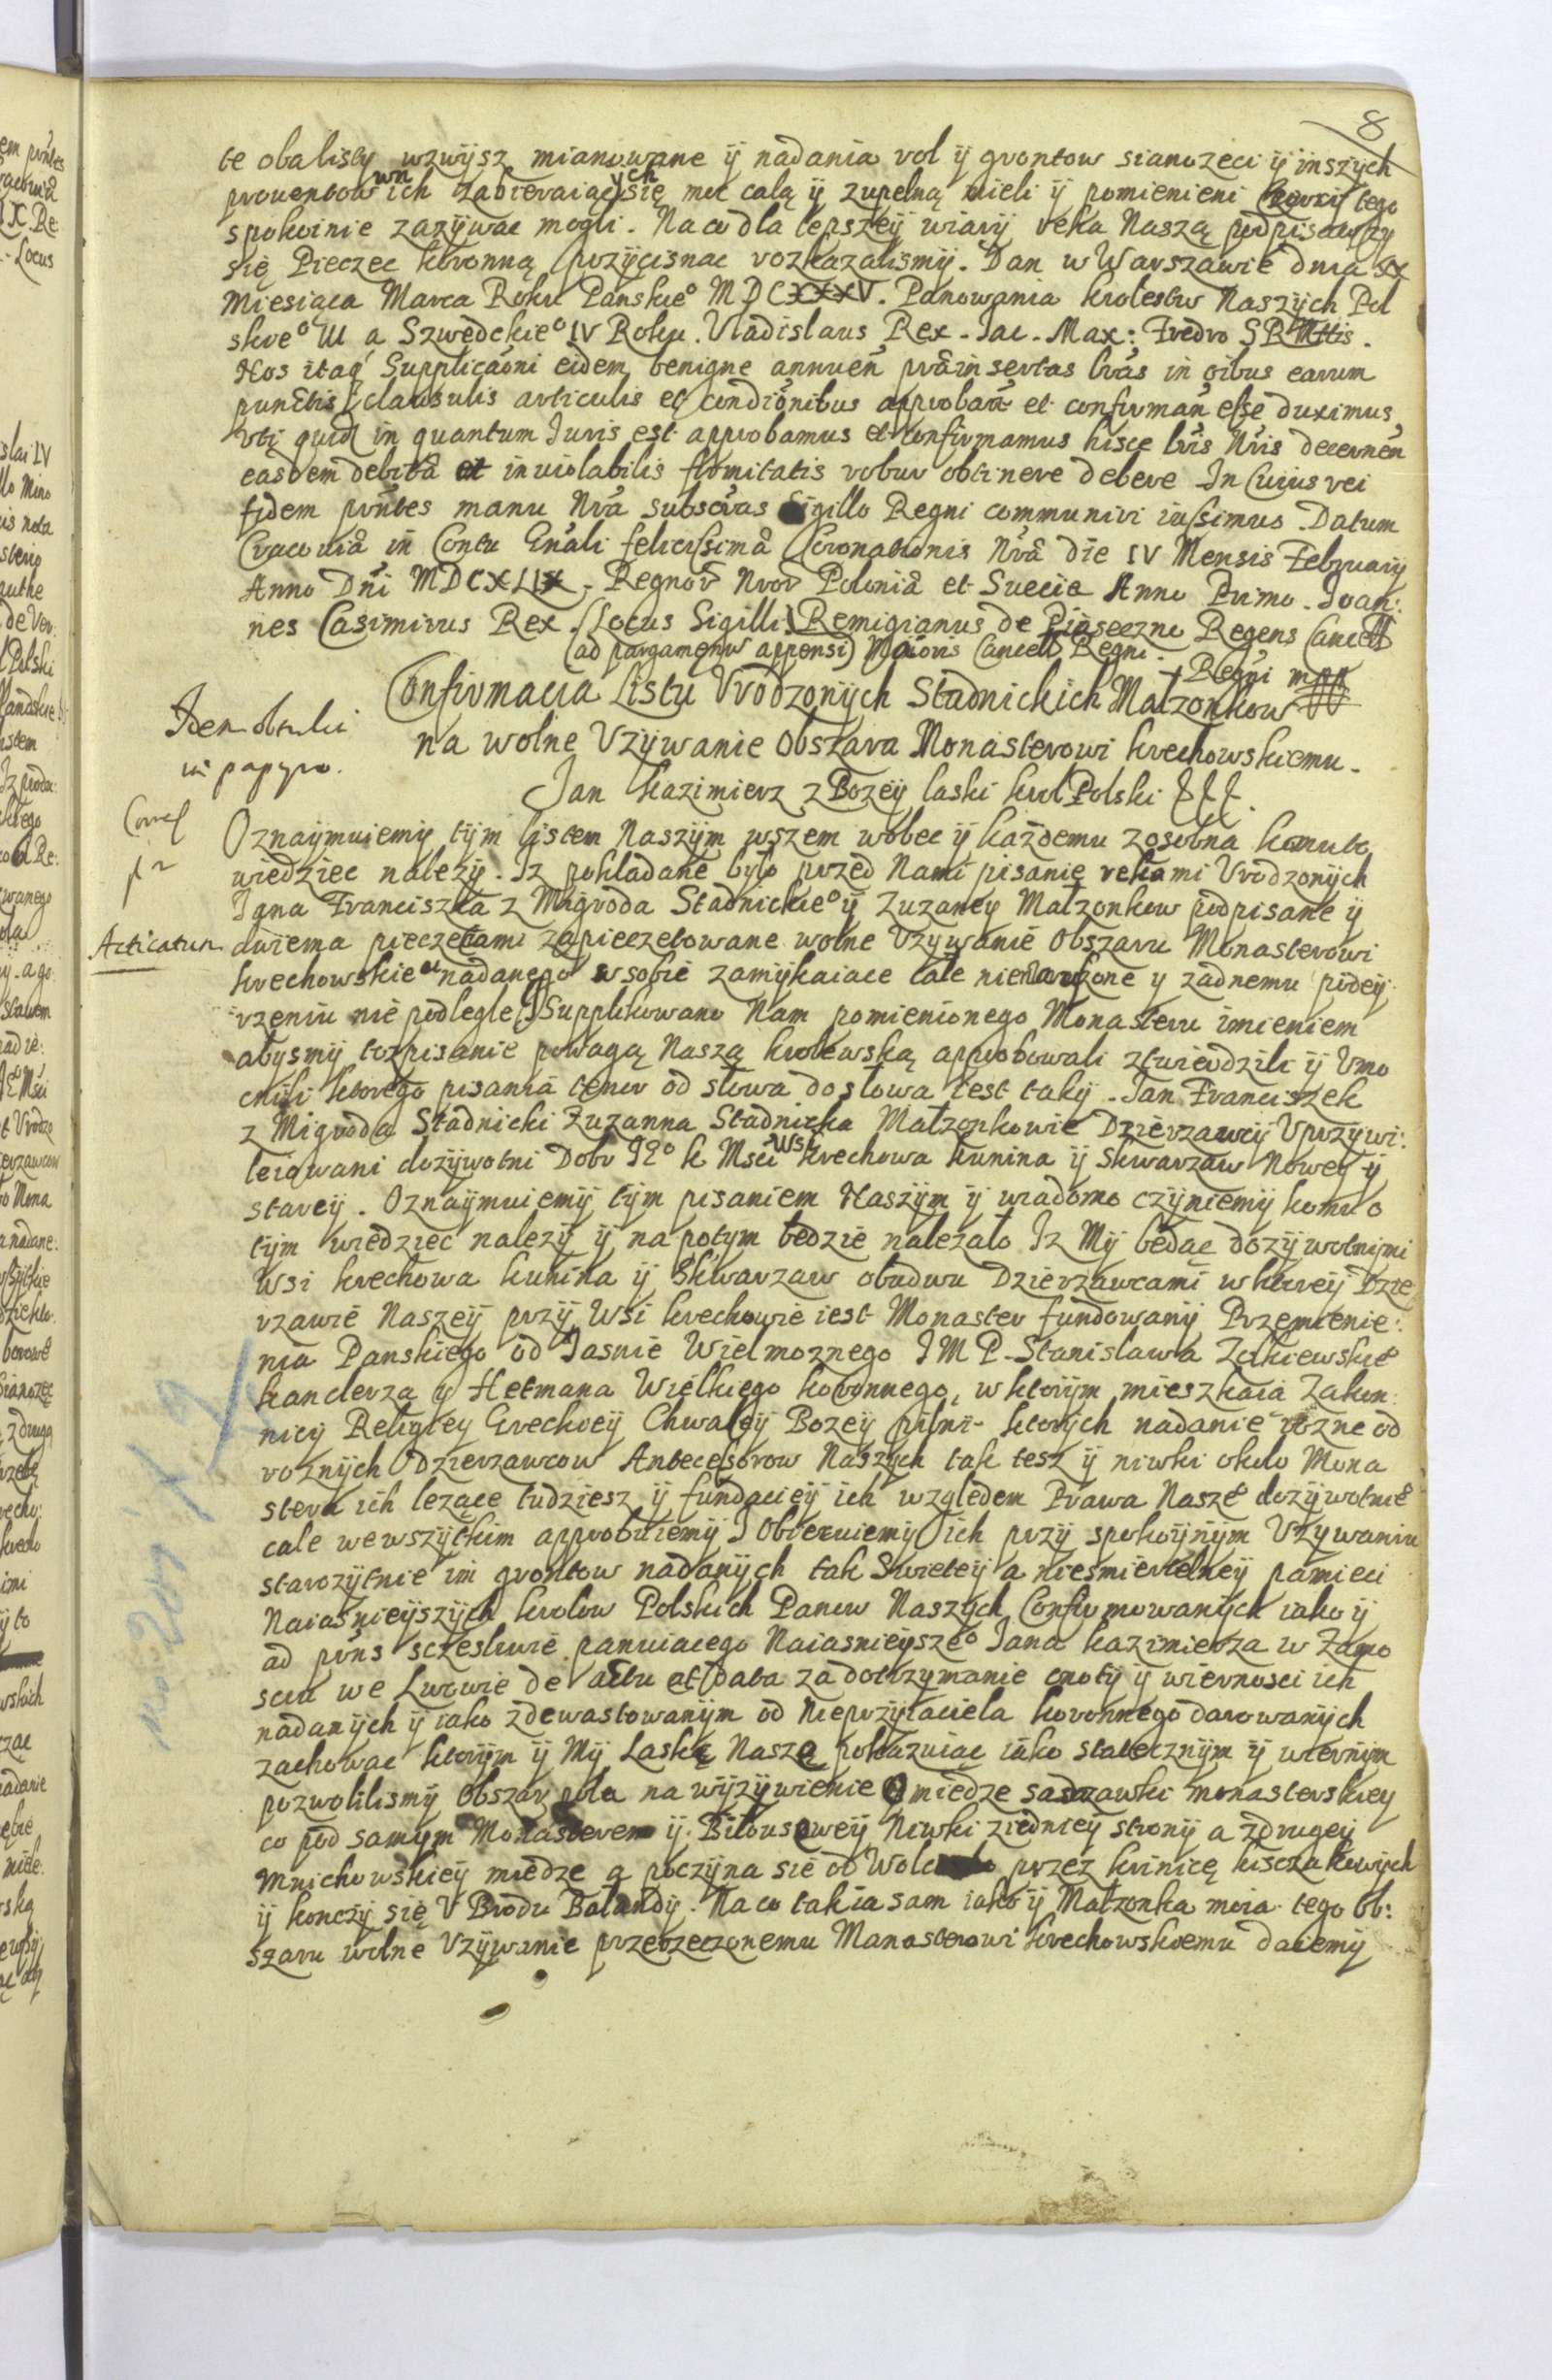 8
te oba listy wzwysz mianowane ÿ nadania rol ÿ grontow sianozeci ÿ inszych
prouentow wn ich zabieraiących się moc całą ÿ zupelną mieli ÿ pomienieni tego
spokoinie zazÿwac mogli. Na co dla lepszeÿ wiarÿ reka Naszą podpisawszy
się Pieczec koronną przÿcisnac rozkazalismÿ. Dan w Warszawie dnia
Miesiąca Marca Roku Panskieº MDCXXXV. Panowania krolestw Naszÿch Pol
skieº III a Szwedckieº IV Roku. Vladislaus Rex. Iac. Max: Fredro SRMttis.
Nos itaq Supplicaoni eidem benigne annuen præinsertas lras in oibus earum
punctis clausulis articulis et condionibus approban et confirman esse duximus
vti quid in quantum Iuris est approbamus et confirmamus hisce lris Nris decernen
easdem debita et inuiolabilis firmitatis robur obtinere debere In Cuius rei
fidem pntes manu Nra subscras Sigillo Regni communiri iussimus. Datum
Cracouia in Contu Gnali felicissima Coronationis Nra die IV Mensis Februarÿ
Anno Dni MDCXLIX. Regnor Nror Polonia et Suecie Anno Primo. Joan:
nes Casimirus Rex. (Locus Sigilli) Remigianus de Piaseczno Regens Cancell
(ad pargamenw appensi) Maioris Cancell Regni.
Regni mpp
Confirmacia Listu Vrodzonÿch Stadnickich Małzonkow
na wolne Vzÿwanie Obszara Monasterowi krechowskiemu.
Idem obtulit
in papyro.
Jan Kazimierz z Bozeÿ laski krol Polski
Oznaÿmuiemÿ tÿm listem Naszÿm wszem wobec ÿ każdemu zosobna komu to
wiedziec nalezÿ. Iz pokladane bÿlo przed Nami pisanie rekami Vrodzonÿch
Jana Franciszka z Migroda Stadnickieº ÿ Zuzanny Małzonkow podpisane ÿ
Acticatum
dwiema pieczetami zapieczetowane wolne Vzywanie Obszaru Monasterowi
krechowskie nadanego w sobie zamÿkaiace cale nienaruszone y zadnemu podeÿ
rzeniu nie podlegle I Supplikowano Nam pomienionego Monasteru imieniem
abysmÿ to pisanie powagą Naszą krolewską approbowali ztwierdzili ÿ Vmo
cnili ktorego pisania tenor od słowa do słowa iest takÿ. Jan Franciszek
z Migroda Stadnicki Zuzanna Stadnicka Małzonkowie Dzierzawcÿ Vprzÿwi:
leiowani dozÿwotni Dobr IEº k Msci Wsi krechowa kunina ÿ Skwarzaw Noweÿ ÿ
stareÿ. Oznaÿmuiemÿ tÿm pisaniem Naszÿm ÿ wiadomo czÿniemÿ komu o
tÿm wiedziec nalezÿ ÿ na potÿm bedzie nalezało Iz Mÿ będąc dozÿwotnimi
Wsi krechowa kunina ÿ Skwarzaw obudwu Dzierzawcami w ktoreÿ Dzie
rzawie Naszeÿ przÿ Wsi krechowie iest Monaster fundowanÿ Przemienie:
nia Panskiego od Iasnie Wielmoznego IMP. Stanislawa Zolkiewskieº
kanclerza y Hetmana Wielkiego koronnego, w ktorÿm mieszkaia Zakon:
nicÿ Religieÿ Greckieÿ Chwaleÿ Bozeÿ pilni ktorÿch nadanie rozne od
roznÿch dzierzawcow Antecessorow Naszÿch tak tesz ÿ niwki okolo Mona
stera ich lezące tudziesz ÿ fundacieÿ ich względem Prawa Naszeº dozÿwotnieº
cale we wszÿtkim approbuiemÿ I Obieruiemÿ ich przÿ spokoÿnÿm Vzÿwaniu
starozÿtnie im grontow nadanÿch tak Swieteÿ a niesmiertelneÿ pamieci
Naiasnieÿszÿch krolow Polskich Panow Naszÿch Confirmowanÿch iako ÿ
ad pnns sczesliwie panuiacego Naiasnieÿszeº Jana kazimierza w Zamo
sciu we Lwowie de actu et data za dotrzymanie cnotÿ ÿ wiernosci ich
nadanÿch ÿ iako zdewastowanÿm od Nieprzÿiaciela koronnego darowanÿch
zachowac ktorÿm ÿ Mÿ Laskę Naszę pokazuiac iako statecznÿm ÿ wiernÿm
pozwolilismÿ Obszar pola na wÿzÿwienie O miedze sadzawki monasterskiey
co pod samym Monasterem ÿ Biłousoweÿ Niwki zIedneÿ stronÿ a zdrugeÿ
Mnichowskieÿ miedze a poczÿna się od przez krinicę kisczakowÿch
ÿ konczÿ się V Brodu Balandÿ. Na co tak ia sam iako ÿ Małzonka moia tego Ob:
szaru wolne Vzÿwanie przerzeczonemu Monasterowi krechowskiemu daiemÿ